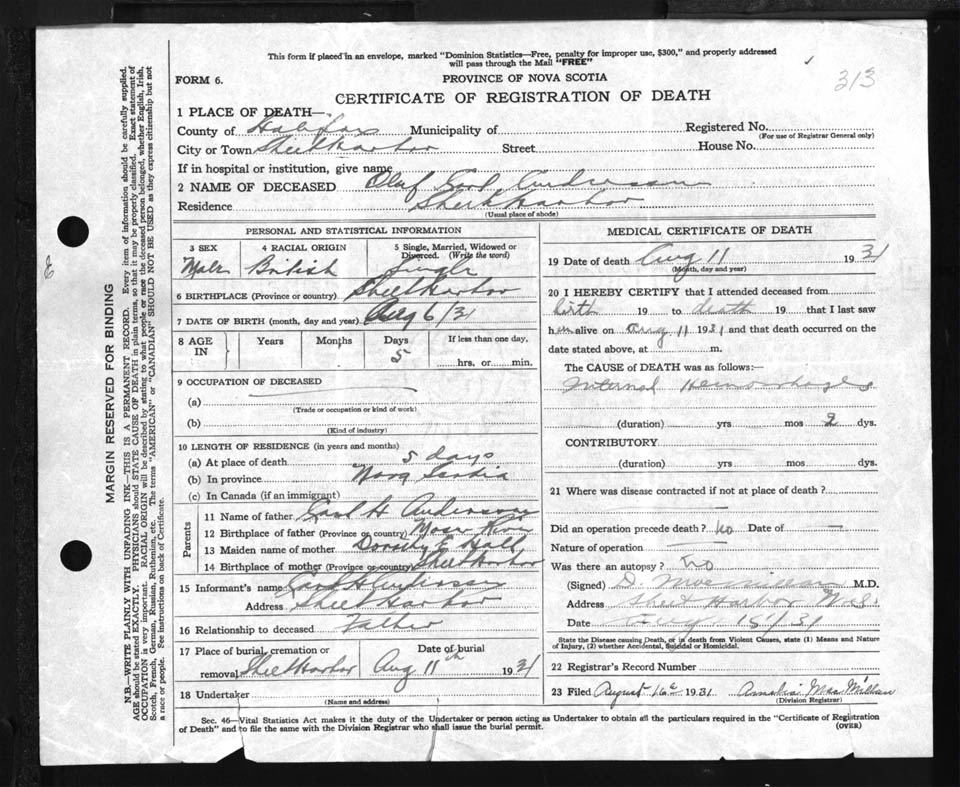 This form if placed in an envelope, marked "Dominion Statistics—Free, penalty for improper use, $300," and properly addressed
will pass through the Mail "FREE"
313
FORM 6.
PROVINCE OF NOVA SCOTIA
CERTIFICATE OF REGISTRATION OF DEATH
MARGIN RESERVED FOR BINDING
N.B.—WRITE PLAINLY WITH UNFADING INK—THIS IS A PERMANENT RECORD. Every item of information should be carefully supplied.
AGE should be stated EXACTLY. PHYSICIANS should STATE CAUSE OF DEATH in plain terms, so that it may be properly classified. Exact statement of
OCCUPATION is very important. RACIAL ORIGIN will be described by stating to what people or race the deceased person belonged, whether English, Irish,
Scotch, French, German, Russian, Ruthenian, etc. The terms "AMERICAN" or "CANADIAN" SHOULD NOT BE USED as they express citizenship but not
a race or people. See instructions on back of Certificate.
1 PLACE OF DEATH—
County of Halifax Municipality of Registered No.
(For use of Registrar General only)
City or Town Sheet Harbor Street House No.
If in hospital or institution, give name
2 NAME OF DECEASED Olaf Carl Anderssen
Residence Sheet Harbor
(Usual place of abode)
PERSONAL AND STATISTICAL INFORMATION
3 SEX 4 RACIAL ORIGIN 5 Single, Married, Widowed or Divorced. (Write the word)
Male British Single
6 BIRTHPLACE (Province or country) Sheet Harbor
7 DATE OF BIRTH (month, day and year) Aug 6/31
8 AGE IN Years Months Days If less than one day,
5 hrs. or min.
9 OCCUPATION OF DECEASED
(a)
(Trade or occupation or kind of work)
(b)
(Kind of industry)
10 LENGTH OF RESIDENCE (in years and months)
(a) At place of death 5 days
(b) In province Nova Scotia
(c) In Canada (if an immigrant)
Parents
11 Name of father Carl H Anderssen
12 Birthplace of father (Province or country)
13 Maiden name of mother Dorothy E Hall
14 Birthplace of mother (Province or country) Sheet Harbor
15 Informant's name Carl H Anderssen
Address Sheet Harbor
16 Relationship to deceased Father
17 Place of burial, cremation or Date of burial
removal Sheet Harbor Aug 11th 1931
18 Undertaker
(Name and address)
MEDICAL CERTIFICATE OF DEATH
19 Date of death Aug 11 1931
(Month, day and year)
20 I HEREBY CERTIFY that I attended deceased from
birth 19 to death 19 that I last saw
him alive on Aug 11 1931 and that death occurred on the
date stated above, at m.
The CAUSE OF DEATH was as follows:—
Internal Hemorrhages
(duration) yrs mos 2 dys.
CONTRIBUTORY
(duration) yrs mos dys.
21 Where was disease contracted if not at place of death?
Did an operation precede death? No Date of —
Nature of operation —
Was there an autopsy? No
(Signed) D. MacMillan M.D.
Address Sheet Harbor N.S.
Date Aug 15/31
State the Disease causing Death, or in death from Violent Causes, state (1) Means and Nature
of Injury, (2) whether Accidental, Suicidal or Homicidal.
22 Registrar's Record Number
23 Filed August 16th 1931 Amelia MacMillan
(Division Registrar)
Sec. 46—Vital Statistics Act makes it the duty of the Undertaker or person acting as Undertaker to obtain all the particulars required in the "Certificate of Registration
of Death" and to file the same with the Division Registrar who shall issue the burial permit.
(OVER)